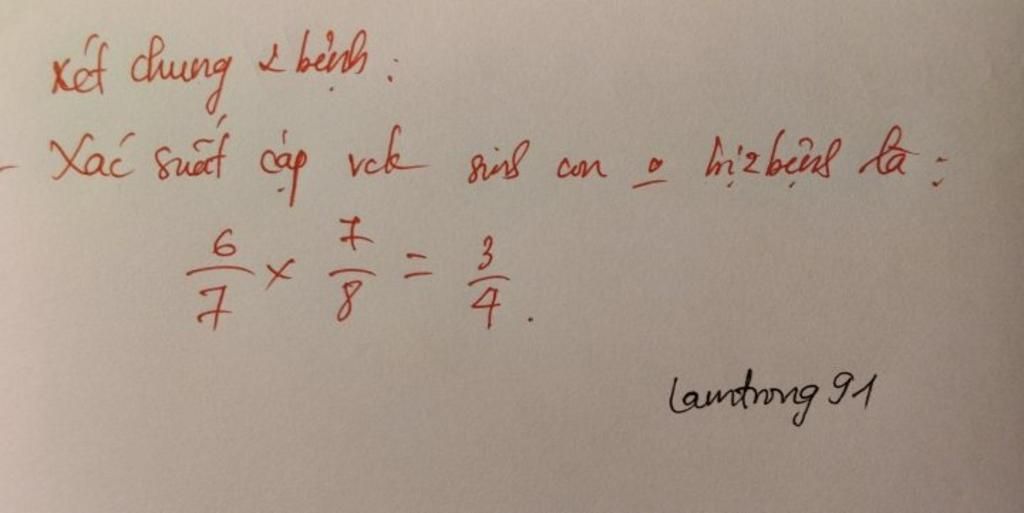 Xét chung 2 bệnh :
- Xác suất cặp vck sinh con o bị 2 bệnh là :
6/7 x 7/8 = 3/4 .
Lamtrong 91